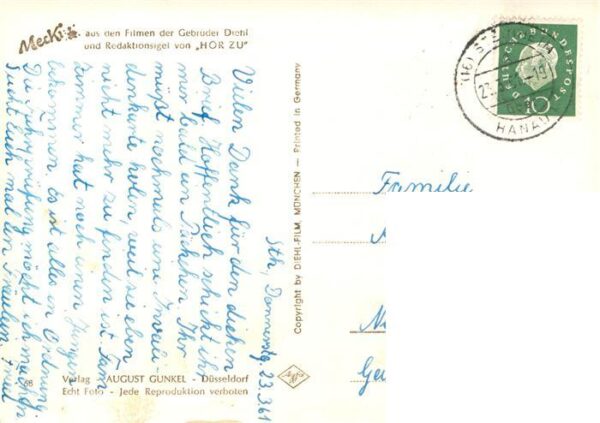 Mecki aus den Filmen der Gebrüder Diehl
und Redaktionsigel von „HÖR ZU"
Sth, Donnerstg. 23.3.61
Vielen Dank für den dicken
Brief. Hoffentlich schickt ihr
mir bald ein Päckchen. Ihr
müßt nochmals eine
karte holen, weil sie eben
nicht mehr zu finden ist. Fam.
Zimmer hat noch einen Jungen
bekommen, es ist alles in Ordnung.
Die prüfung möcht ich machen.
Sucht euch mal ein Fräulein.
68
Verlag AUGUST GUNKEL - Düsseldorf
Echt Foto - Jede Reproduktion verboten
Copyright by DIEHL-FILM, MÜNCHEN — Printed in Germany
DEUTSCHE BUNDESPOST
10
(16)
23.
HANAU
Familie